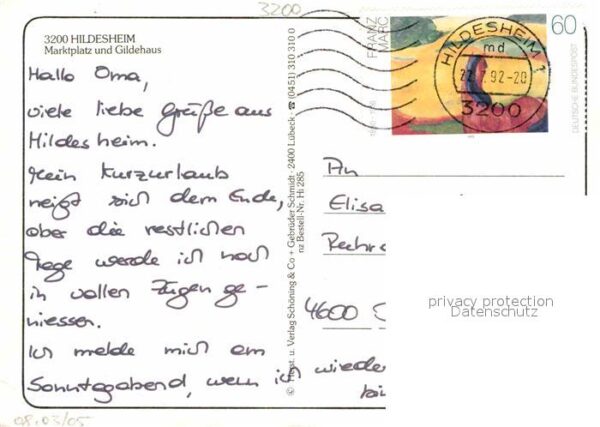 3200
3200 HILDESHEIM
Marktplatz und Gildehaus
Hallo Oma,
viele liebe Grüße aus
Hildesheim.
Mein Kurzurlaub
neigt sich dem Ende,
aber die restlichen
Tage werde ich noch
in vollen Zügen ge-
niessen.
Ich melde mich am
Sonntagabend, wenn ich wieder
bin
© Horst. u. Verlag Schöning & Co + Gebrüder Schmidt · 2400 Lübeck · ☎ (0451) 310 310 0
nz Bestell-Nr. Hi 285
FRANZ
MARC
60
DEUTSCHE BUNDESPOST
HILDESHEIM 1
md
92-20
3200
An
Elisa
4600
privacy protection
Datenschutz
08.03/05